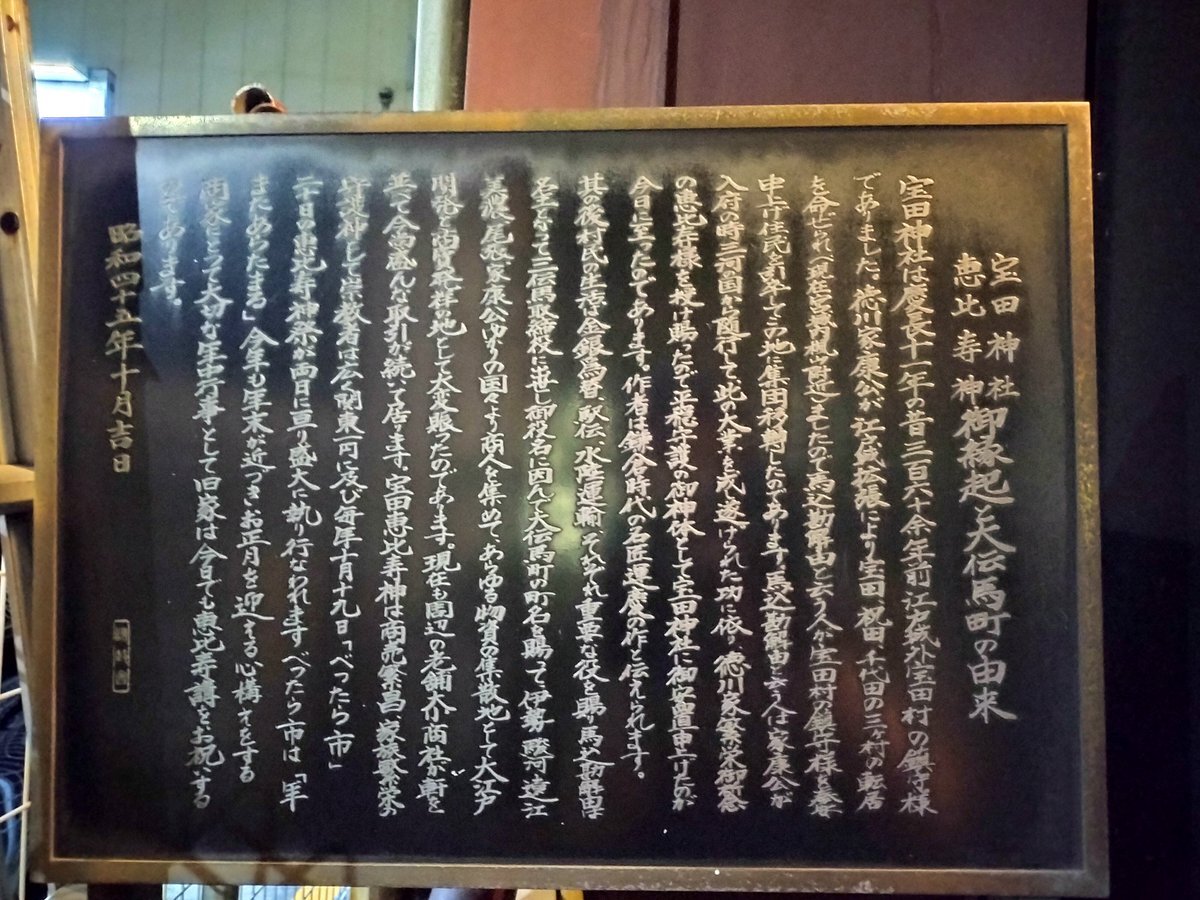 宝田神社
恵比寿神
御縁起と大伝馬町の由来
宝田神社は慶長十一年の昔三百六十余年前江戸城外宝田村の鎮守様
でありました、徳川家康公が江戸城拡張により宝田、祝田、千代田の三ヶ村の転居
を命ぜられ(現在宮城内楓山附近)ましたので馬込勘解由と云う人が宝田村の鎮守様を奉安
申上げ住民を引率してこの地に集団移動したのであります。馬込勘解由と云う人は家康公が
入府の時三河国から随行して此の大業を成し遂げられた功に依り、徳川家繁栄御祈念
の恵比寿様を授け賜ったので平穏守護の御神体として宝田神社に御安置申上げたのが
今日に至ったのであります。作者は鎌倉時代の名匠運慶の作と伝えられます。
其の後村民の生活は金銀為替、駅伝、水陸運輸、それぞれ重要な役を賜り馬込勘解由は
名主となって三伝馬取締役に出世し御役名に因んで大伝馬町の町名を賜って、伊勢、駿河、遠江
美濃、尾張、家康公ゆかりの国々より商人を集めて、あらゆる物資の集散地として大江戸
開発の商賈発祥の地として大変賑ったのであります。現在も周辺の老舗大小商社が軒を
並べて今尚盛んな取引が続いて居ります。宝田恵比寿神は商売繁昌、家族繁栄の
守護神として崇敬者は広く関東一円に及び毎年十月十九日「べったら市」
二十日の恵比寿神祭が両日に亘り盛大に執り行なわれます。べったら市は「年
またあらたまる」今年も年末が近づきお正月を迎える心構えをする
商家にとって大切な年中行事として旧家は今日でも恵比寿講をお祝いする
のであります。
昭和四十五年十月吉日